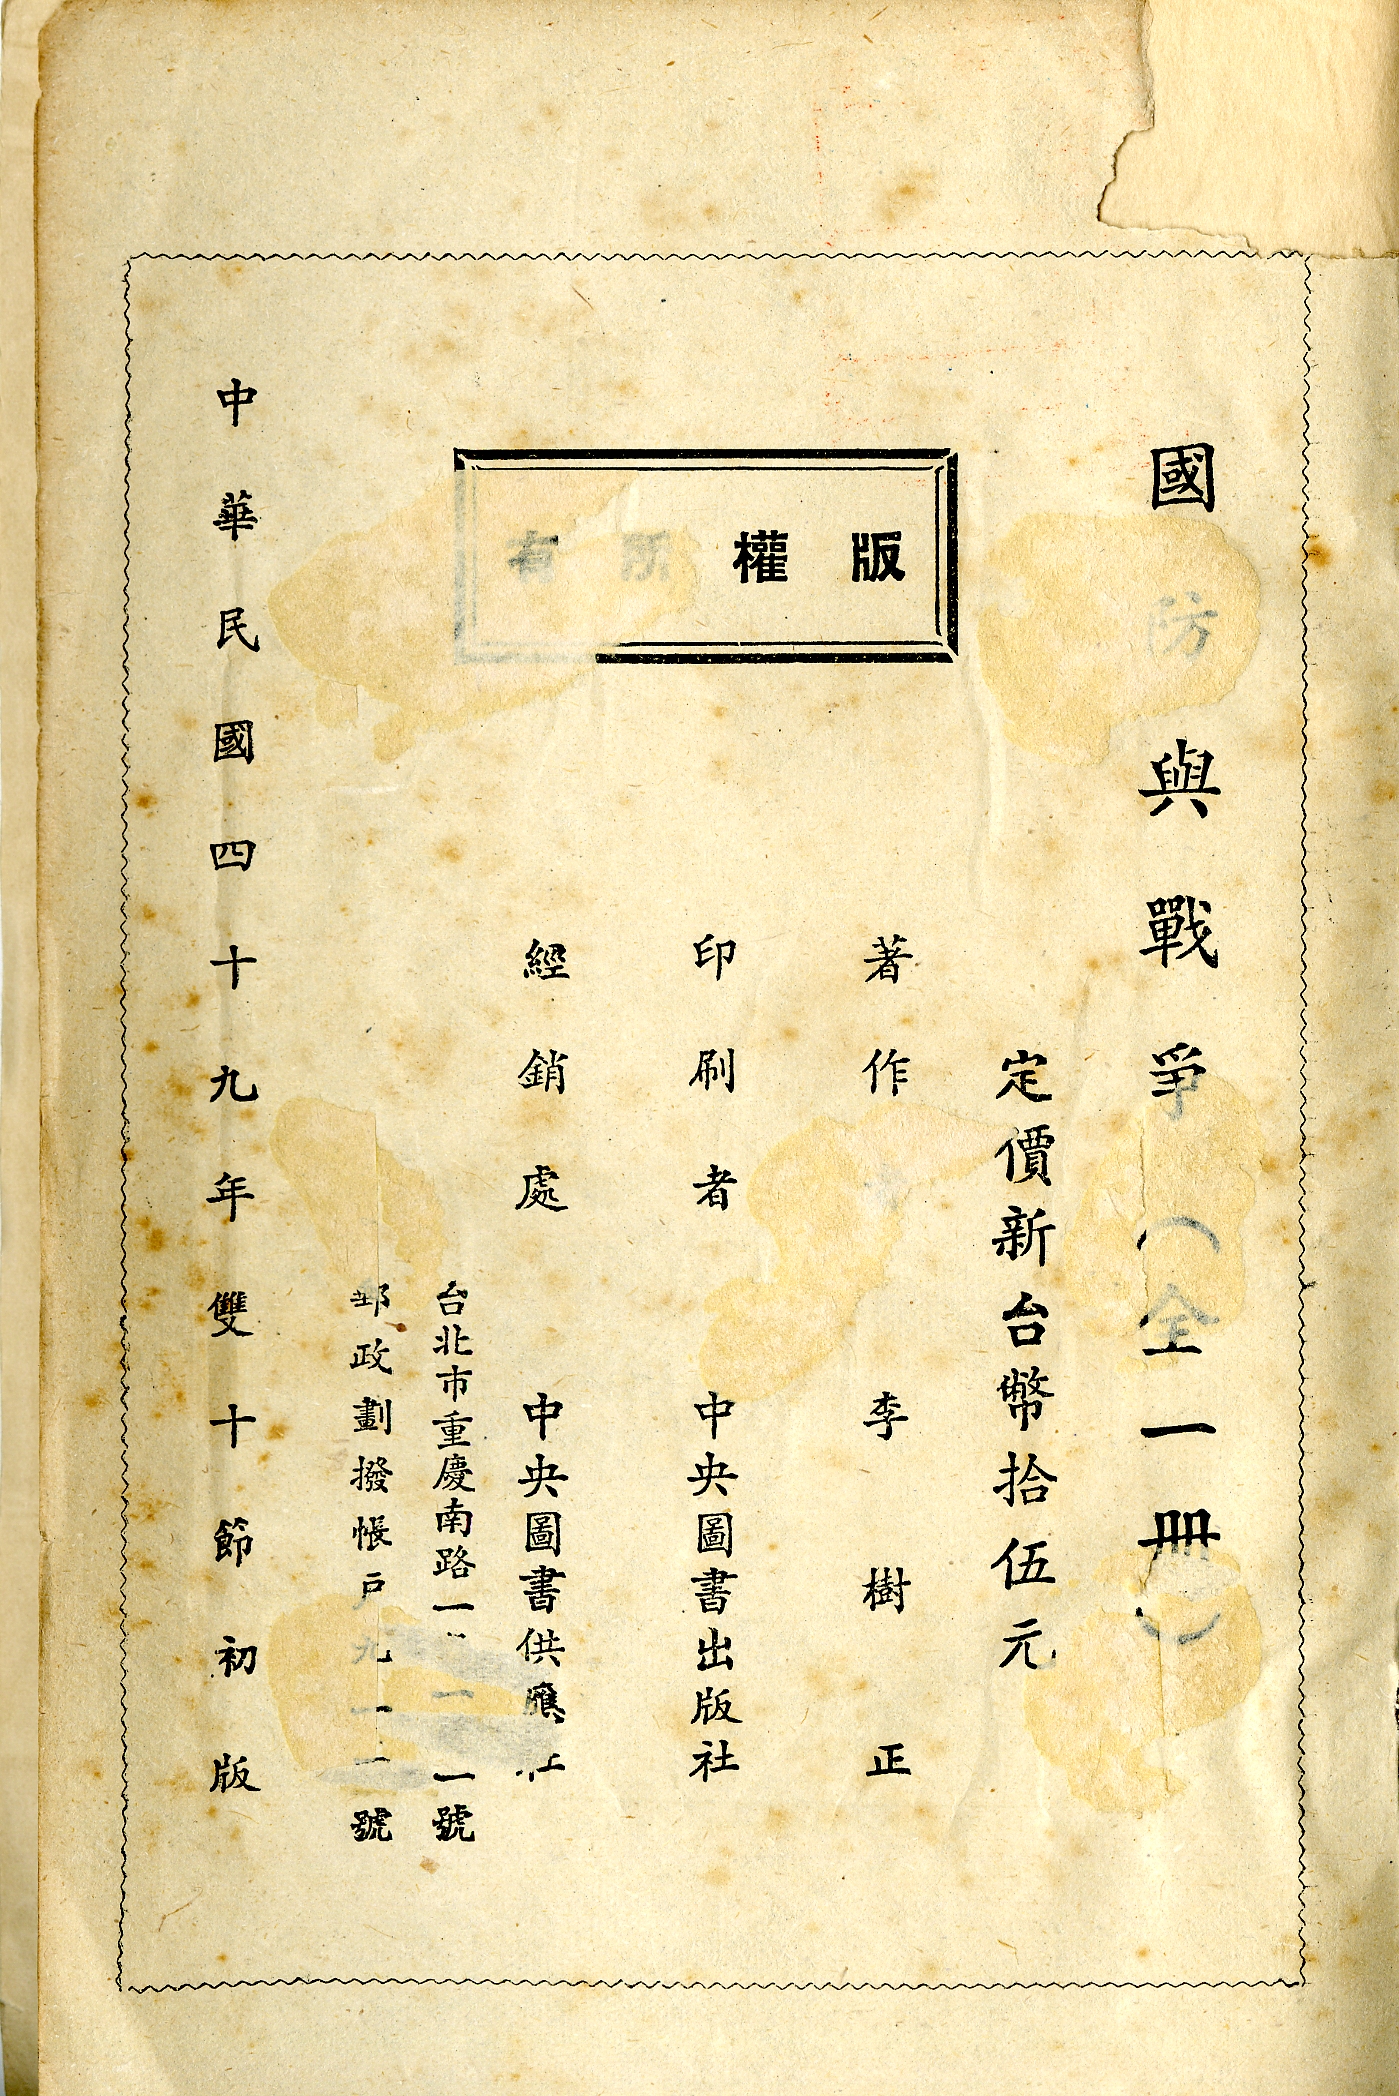 國防與戰爭（全一冊）
定價新台幣拾伍元
版權所有
著作
李樹正
印刷者
中央圖書出版社
經銷處
中央圖書供應社
台北市重慶南路一 一 一號
郵政劃撥帳戶九一 號
中華民國四十九年雙十節初版